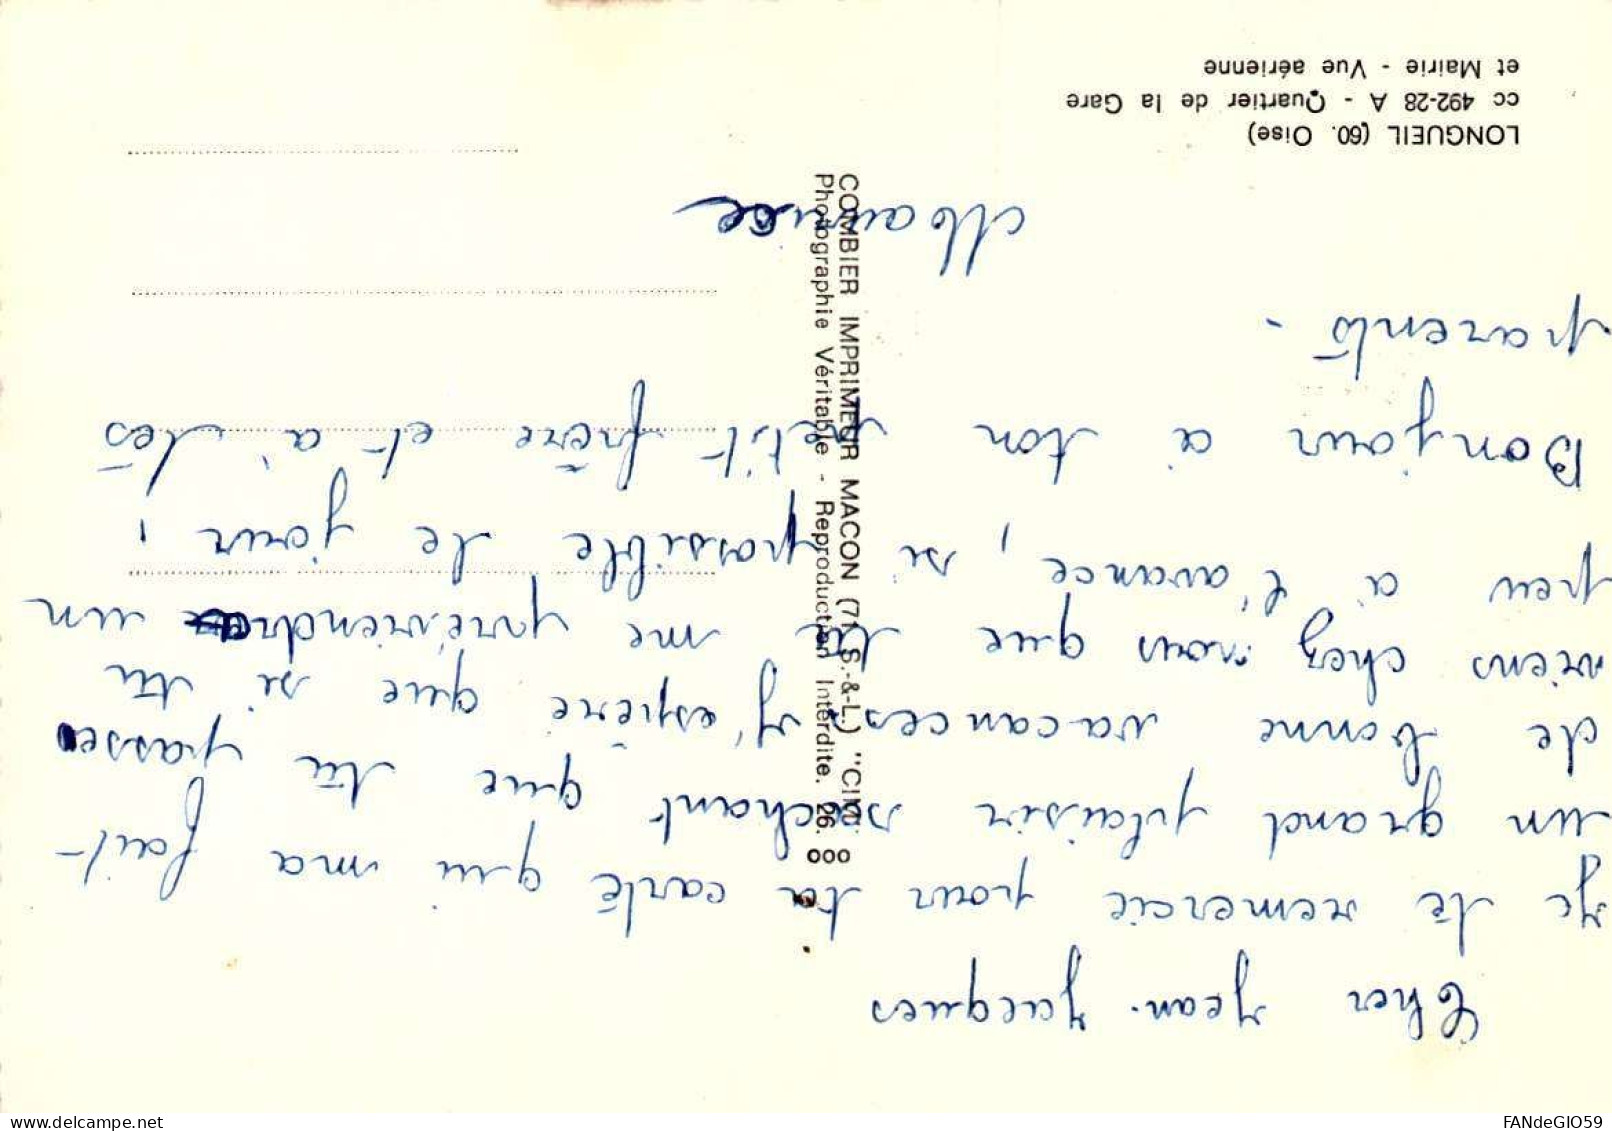 Cher Jean-Jacques
Je te remercie pour ta carte qui ma fait
un grand plaisir sachant que tu passe
de bonne vacances, j'espère que si tu
viens chez nous que tu me préviendra un
peu à l'avance, si possible le jour,
Bonjour a ton petit frère et a tes
parents -
Maurice
LONGUEIL (60. Oise)
cc 492-28 A - Quartier de la Gare
et Mairie - Vue aérienne
COMBIER IMPRIMEUR MACON (71 S.-&-L.) "CIM"
Photographie Véritable - Reproduction Interdite. 26. 000
www.delcampe.net
FANdeGIO59